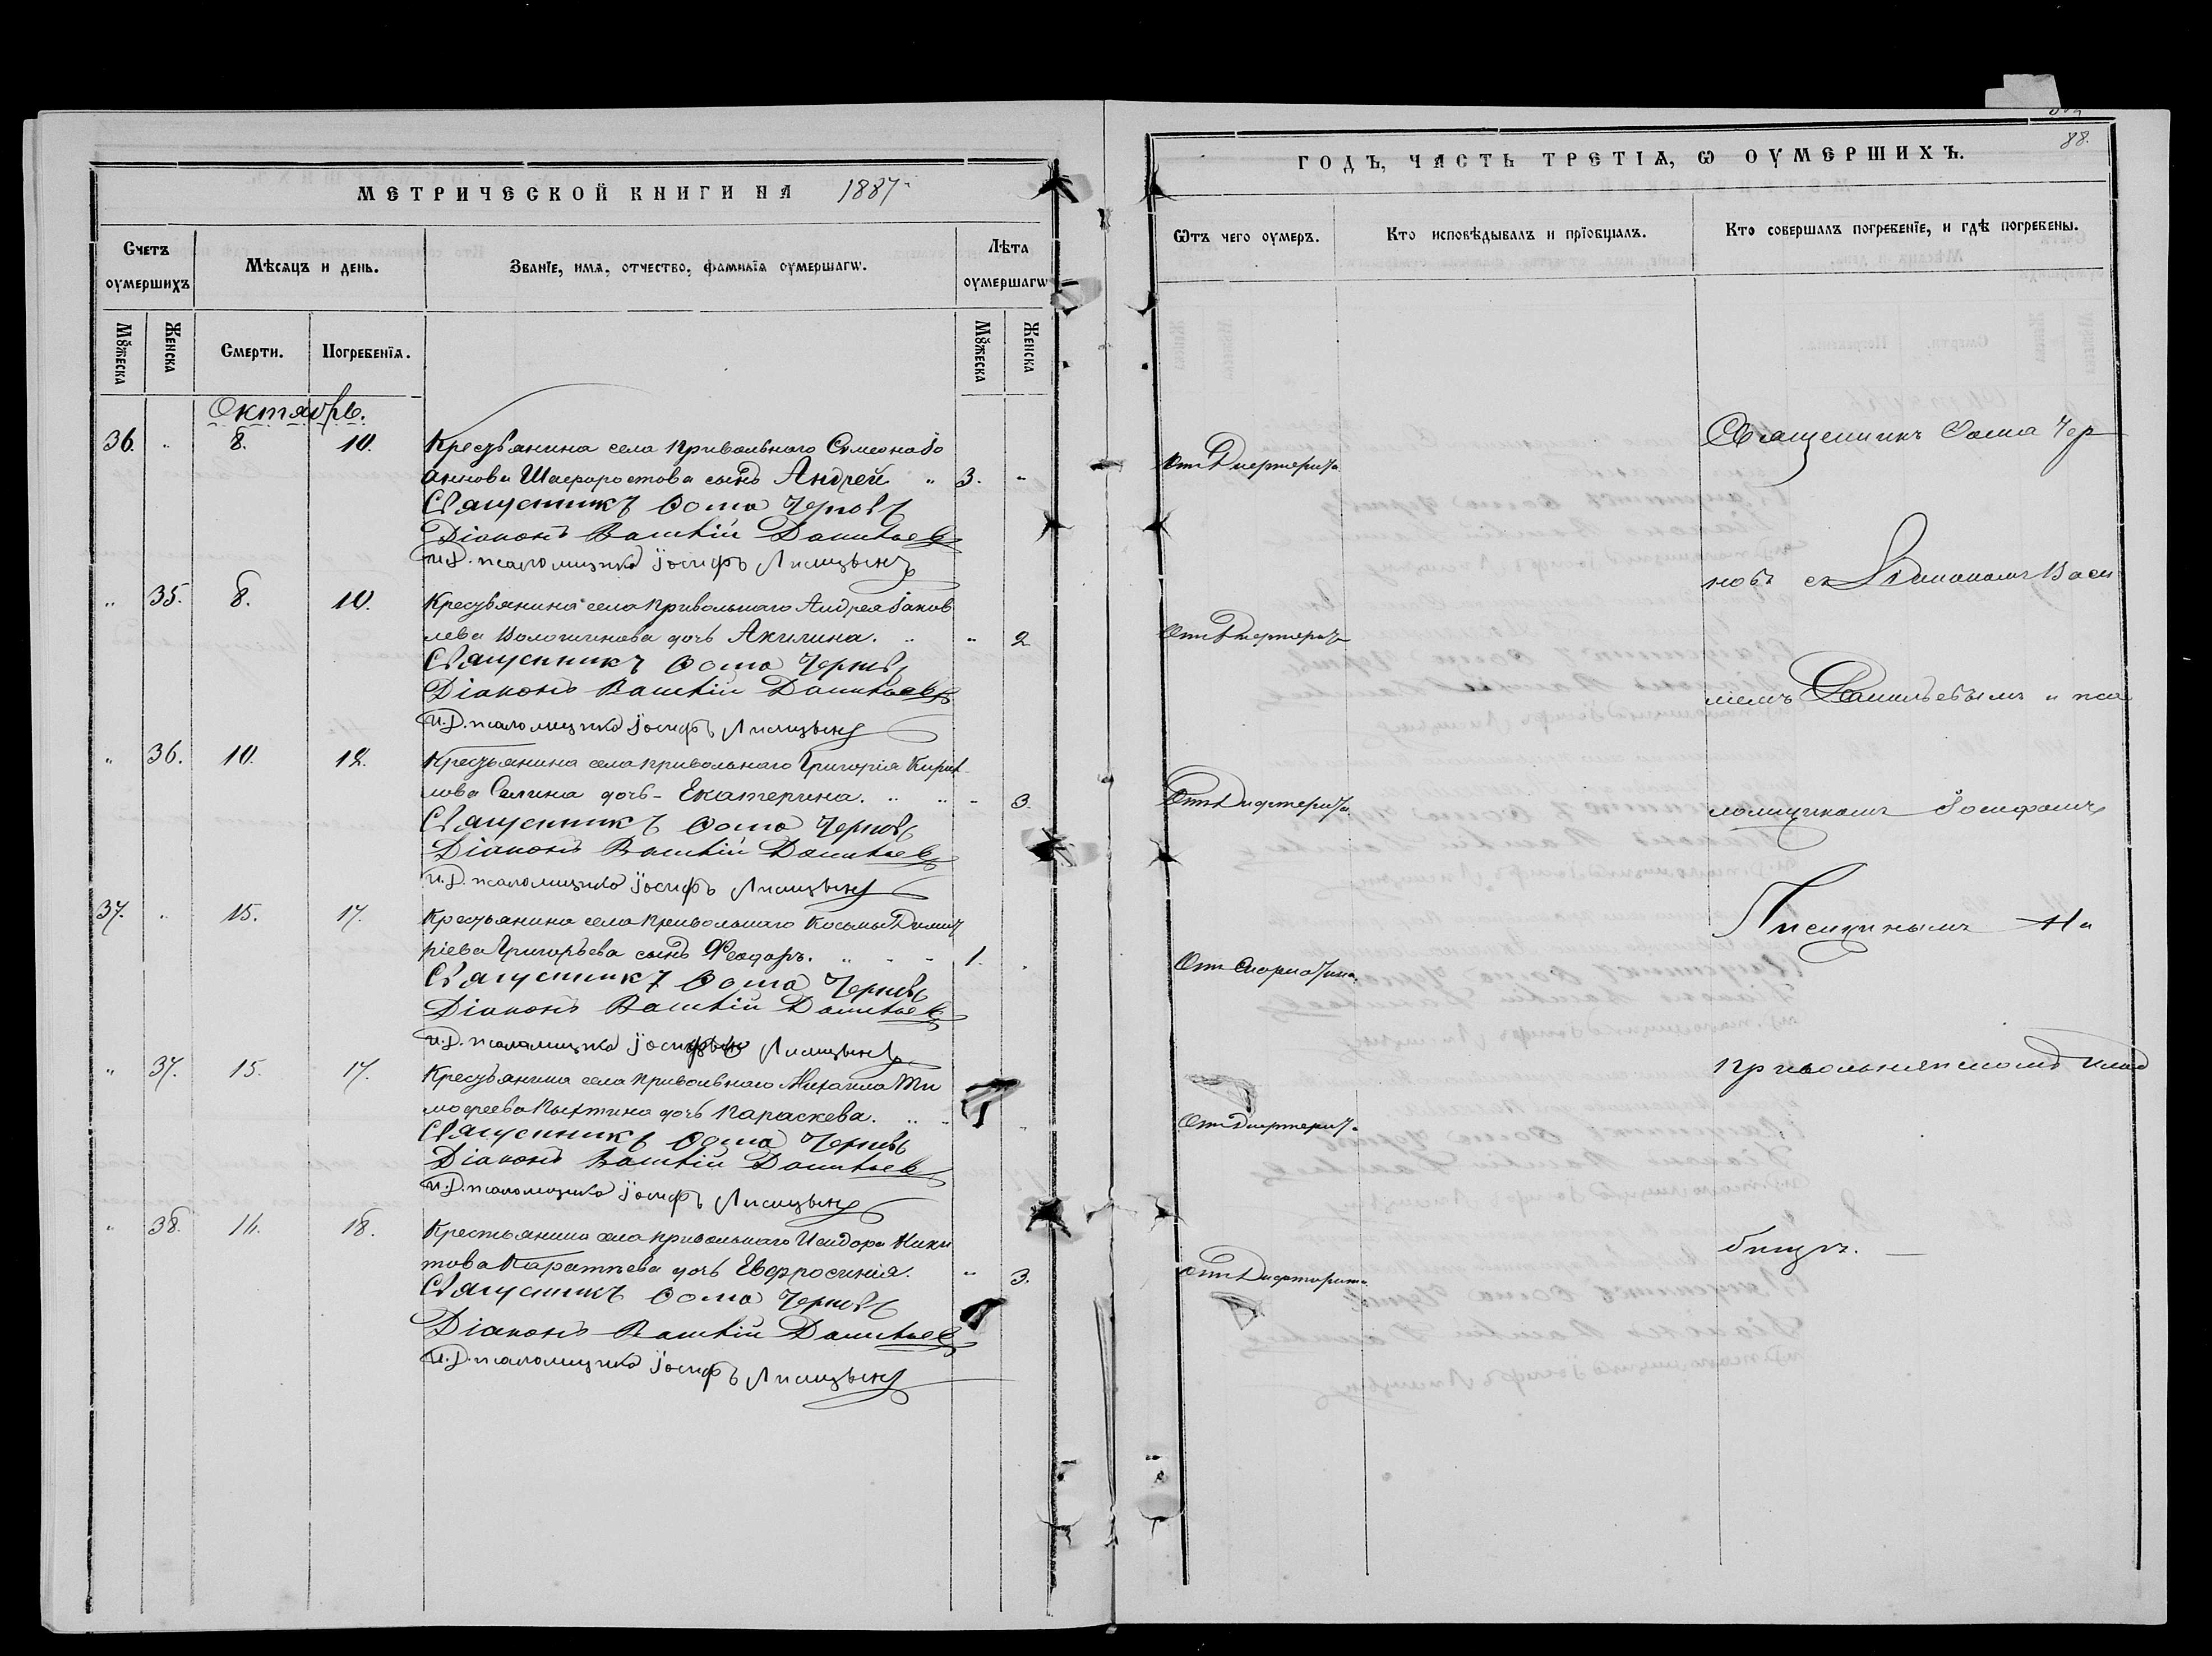 МЕТРИЧЕСКОЙ КНИГИ НА 1887
Счетъ оумершихъ
Мѣсяцъ и день.
Званїе, имя, отчество, фамилїя оумершагѡ.
Лѣта оумершагѡ
Мꙋжеска
Женска
Смерти.
Погребенїя.
Мꙋжеска
Женска
Октябрь.
36. " 8. 10. Крестьянина села Привольнаго Симеона Іо
аннова сынъ Андрей " 3. "
Священникъ Ѳома Черновъ
Діаконъ Василій Данильевъ
И.Д. псаломщика Іосифъ Лисицынъ
" 35. 8. 10. Крестьянина села Привольнаго Андрея Іаков
лева дочь Акилина. " " 2
Священникъ Ѳома Черновъ
Діаконъ Василій Данильевъ
И.Д. псаломщика Іосифъ Лисицынъ
" 36. 10. 12. Крестьянина села Привольнаго Григорія Кирил
лова Салина дочь - Екатерина. " " - 3.
Священникъ Ѳома Черновъ
Діаконъ Василій Данильевъ
И.Д. псаломщика Іосифъ Лисицынъ
37. " 15. 17. Крестьянина села Привольнаго Космы Димит
ріева Григорьева сынъ Ѳеодоръ. " - - 1.
Священникъ Ѳома Черновъ
Діаконъ Василій Данильевъ
И.Д. псаломщика Іосифъ Лисицынъ
" 37. 15. 17. Крестьянина села Привольнаго Михаила Ти
моѳеева дочь Параскева. "
Священникъ Ѳома Черновъ
Діаконъ Василій Данильевъ
И.Д. псаломщика Іосифъ Лисицынъ
" 38. 18. Крестьянина села Привольнаго Исидора Ники
това дочь Евфросинія. " 3.
Священникъ Ѳома Черновъ
Діаконъ Василій Данильевъ
И.Д. псаломщика Іосифъ Лисицынъ
88.
ГОДЪ, ЧАСТЬ ТРЕТІЯ, Ѡ ОУМЕРШИХЪ.
Ѿтъ чего оумеръ.
Кто исповѣдывалъ и прїобщалъ.
Кто совершалъ погребенїе, и гдѣ погребены.
Священникъ Ѳома Чер
Отъ Дифтерита
новъ съ Діакономъ Васи
Отъ Дифтерита
ліемъ Данильевымъ и пса
Отъ Дифтерита
ломщикомъ Іосифомъ
Лисицынымъ На
Отъ
Привольненскомъ клад
Отъ Дифтерита
бищѣ.
Отъ Дифтерита